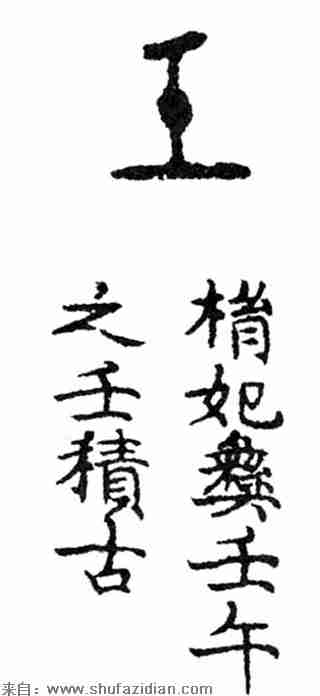 壬
楕妃彝壬午
之壬積古
来自：www.shufazidian.com